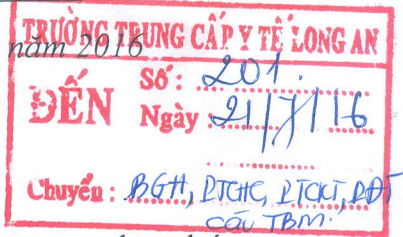 TRƯỜNG TRUNG CẤP Y TẾ LONG AN
năm 2016
ĐẾN
Số: 201.
Ngày: 21/7/16
Chuyển: BGH, PTCHC, PTCKT, PĐT
các TBM.